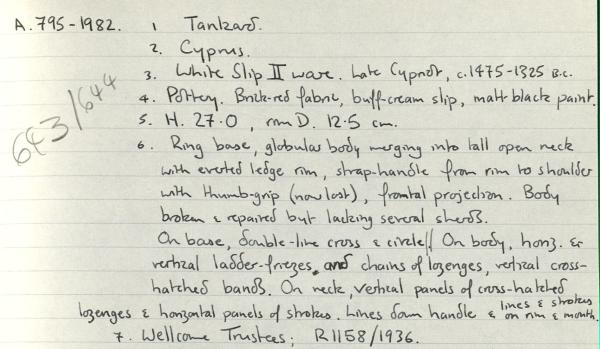 A.795-1982. 1 Tankard.
2. Cyprus.
3. White Slip II ware. Late Cypriot, c.1475-1325 B.C.
4. Pottery. Brick-red fabric, buff-cream slip, matt black paint.
5. H. 27.0, rim D. 12.5 cm.
643/644
6. Ring base, globular body merging into tall open neck
with everted ledge rim, strap-handle from rim to shoulder
with thumb-grip (now lost), frontal projection. Body
broken & repaired but lacking several sherds.
On base, double-line cross & circle // On body, horiz. &
vertical ladder-friezes, and chains of lozenges, vertical cross-
hatched bands. On neck, vertical panels of cross-hatched
lozenges & horizontal panels of strokes. Lines down handle & lines & strokes
on rim & mouth.
7. Wellcome Trustees; R1158/1936.